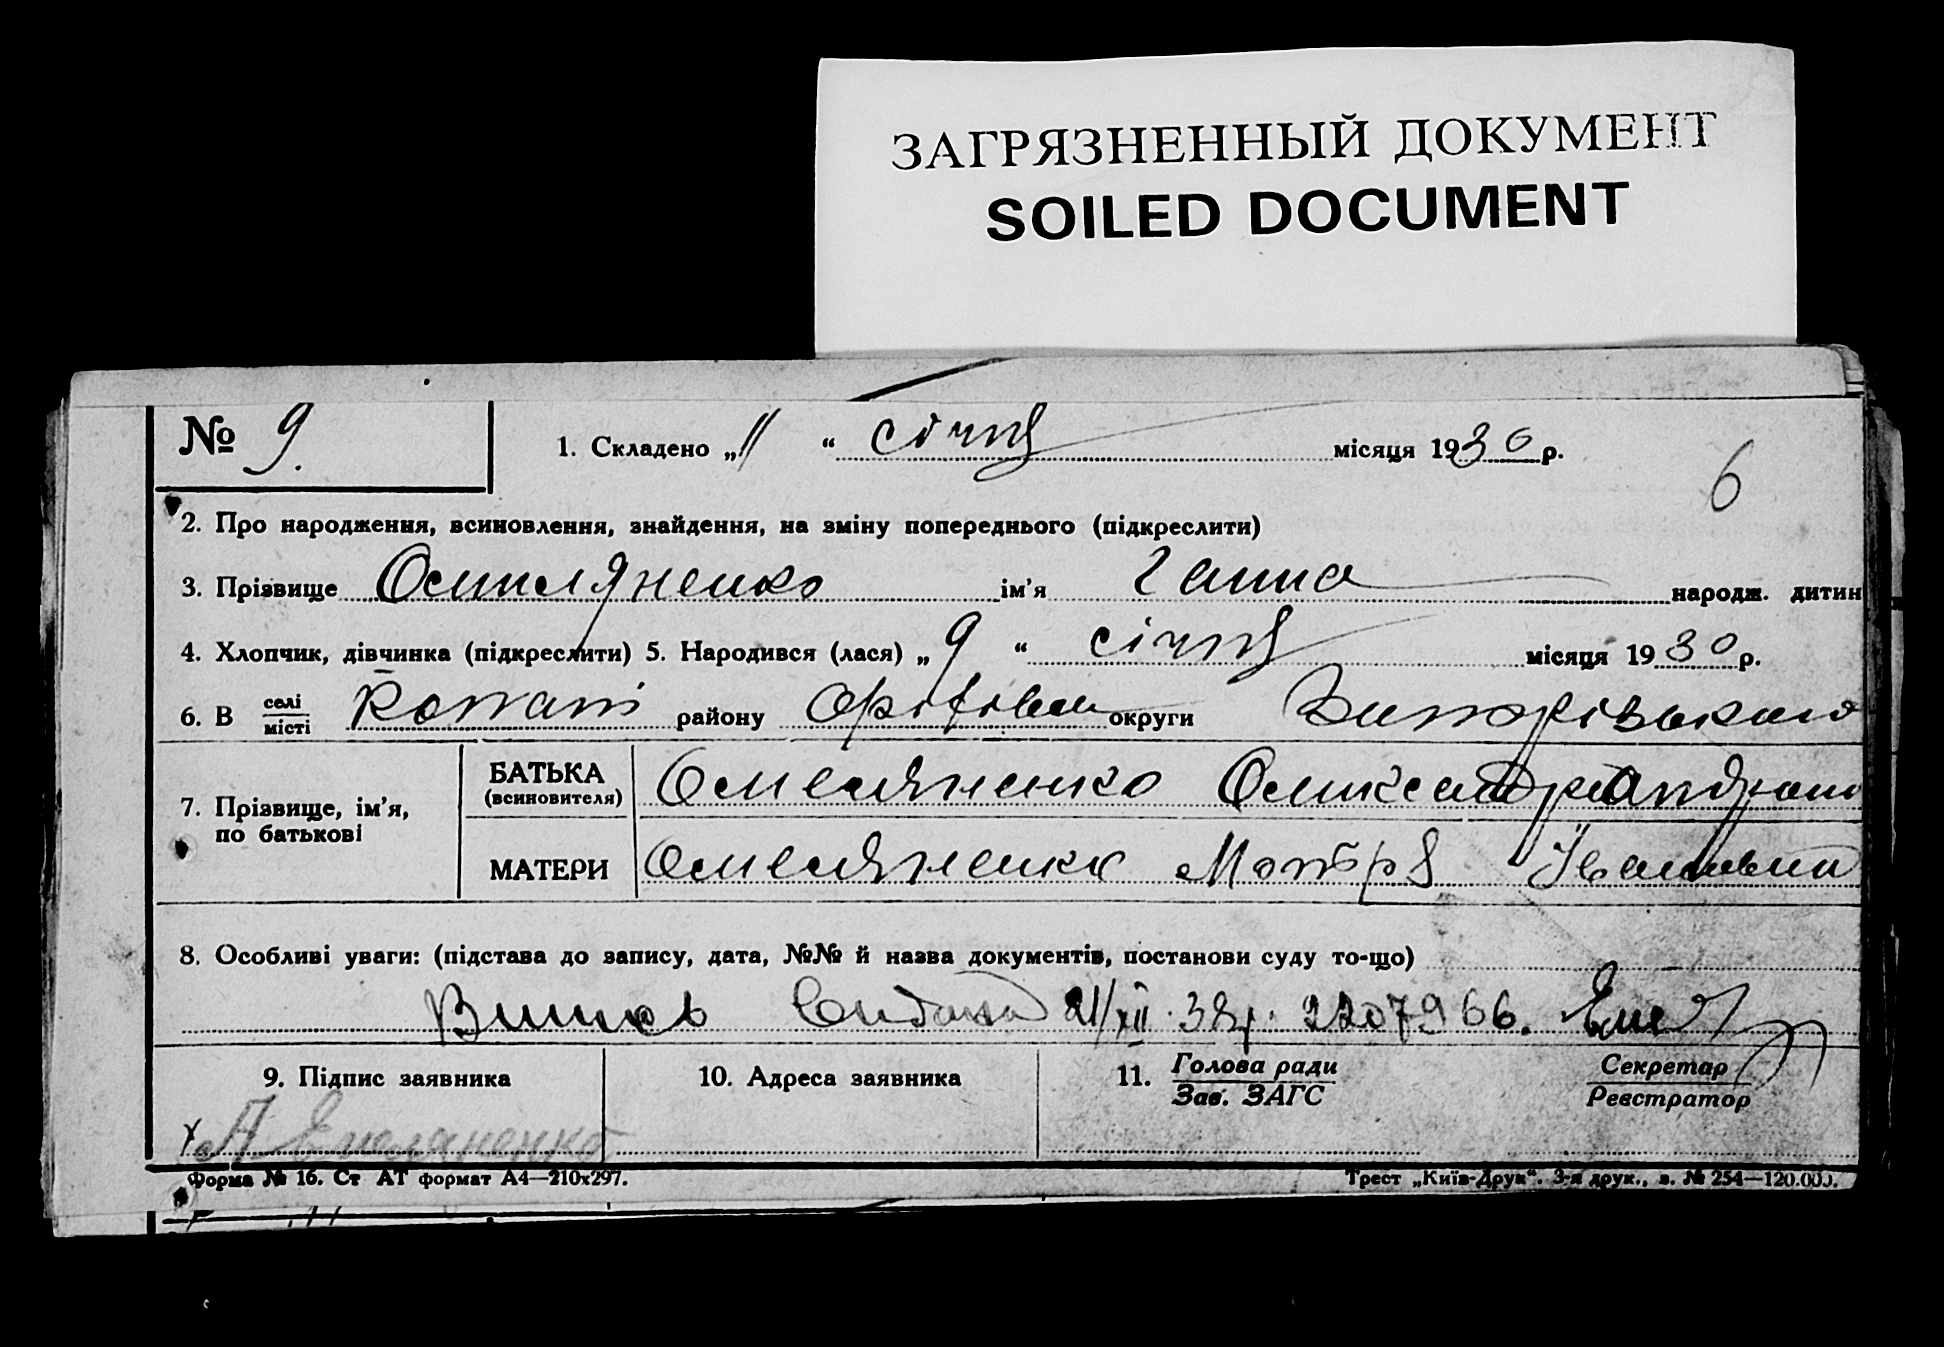 ЗАГРЯЗНЕННЫЙ ДОКУМЕНТ
SOILED DOCUMENT
№ 9.
1. Складено „11“ січня місяця 1930 р.
6
2. Про народження, всиновлення, знайдення, на зміну попереднього (підкреслити)
3. Прізвище Омиляненко ім’я Ганна народж. дитин
4. Хлопчик, дівчинка (підкреслити) 5. Народився (лася) „9“ січня місяця 1930 р.
6. В селі місті Копані району Оріхівськ округи Запорізького
7. Прізвище, ім’я, по батькові
БАТЬКА (всиновителя) Омеляненко
МАТЕРИ Омеляненко Мотря Іванівна
8. Особливі уваги: (підстава до запису, дата, №№ й назва документів, постанови суду то-що)
21/XII. 38р. 2207966.
9. Підпис заявника
10. Адреса заявника
11. Голова ради Зав. ЗАГС
Секретар Реєстратор
А Емеляненко
Форма № 16. Ст АТ формат А4—210х297.
Трест „Київ-Друк“. 3-я друк., з. № 254—120.000.